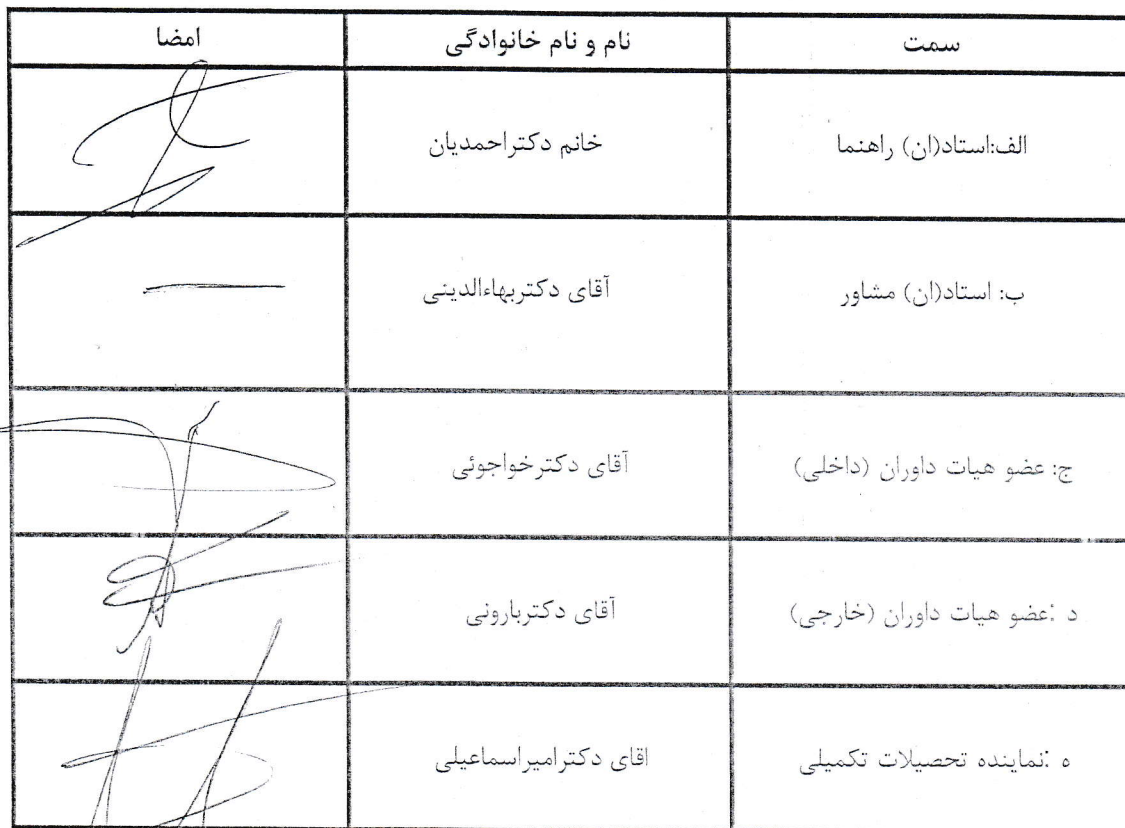 سمت نام و نام خانوادگی امضا
الف:استاد(ان) راهنما خانم دکتراحمدیان
ب: استاد(ان) مشاور آقای دکتربهاءالدینی
ج: عضو هیات داوران (داخلی) آقای دکترخواجوئی
د :عضو هیات داوران (خارجی) آقای دکتربارونی
ه :نماینده تحصیلات تکمیلی اقای دکترامیراسماعیلی